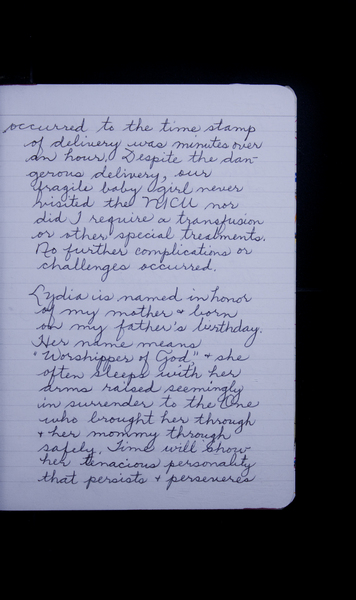 occurred to the time stamp
of delivery was minutes over
an hour. Despite the dan-
gerous delivery, our
fragile baby girl never
visited the NICU nor
did I require a transfusion
or other special treatments.
No further complications or
challenges occurred.
Lydia is named in honor
of my mother & born
on my father's birthday.
Her name means
"Worshipper of God," & she
often sleeps with her
arms raised seemingly
in surrender to the One
who brought her through
& her mommy through
safely. Time will show
her tenacious personality
that persists & perseveres